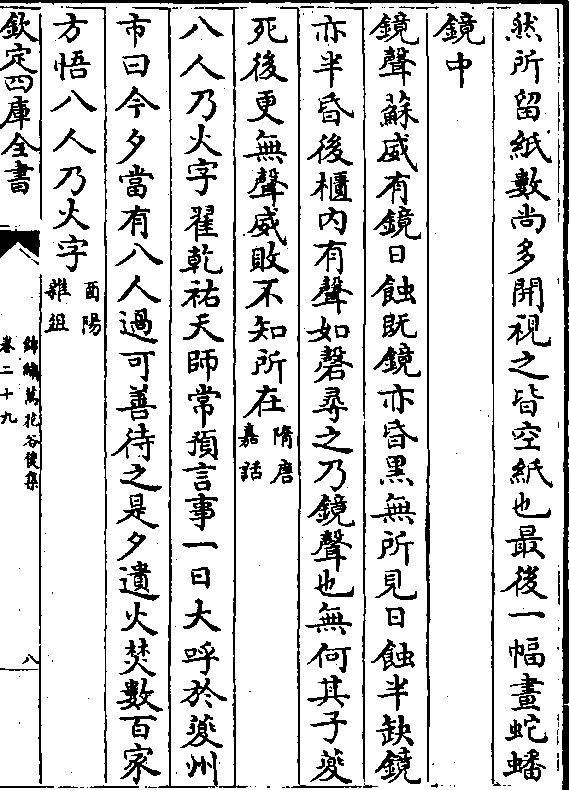 然所留紙數尚多開視之皆空紙也最後一幅畫蛇蟠
鏡中
鏡聲蘇威有鏡日蝕既鏡亦昏黒無所見日蝕半缺鏡
亦半昏後櫃内有聲如磬尋之乃鏡聲也無何其子夔
死後更無聲威敗不知所在隋唐嘉話
八人乃火字翟乾祐天師常預言事一日大呼於夔州
市曰今夕當有八人過可善待之是夕遺火焚數百家
方悟八人乃火字酉陽雜俎
錦繡萬花谷後集
卷二十九
八
欽定四庫全書